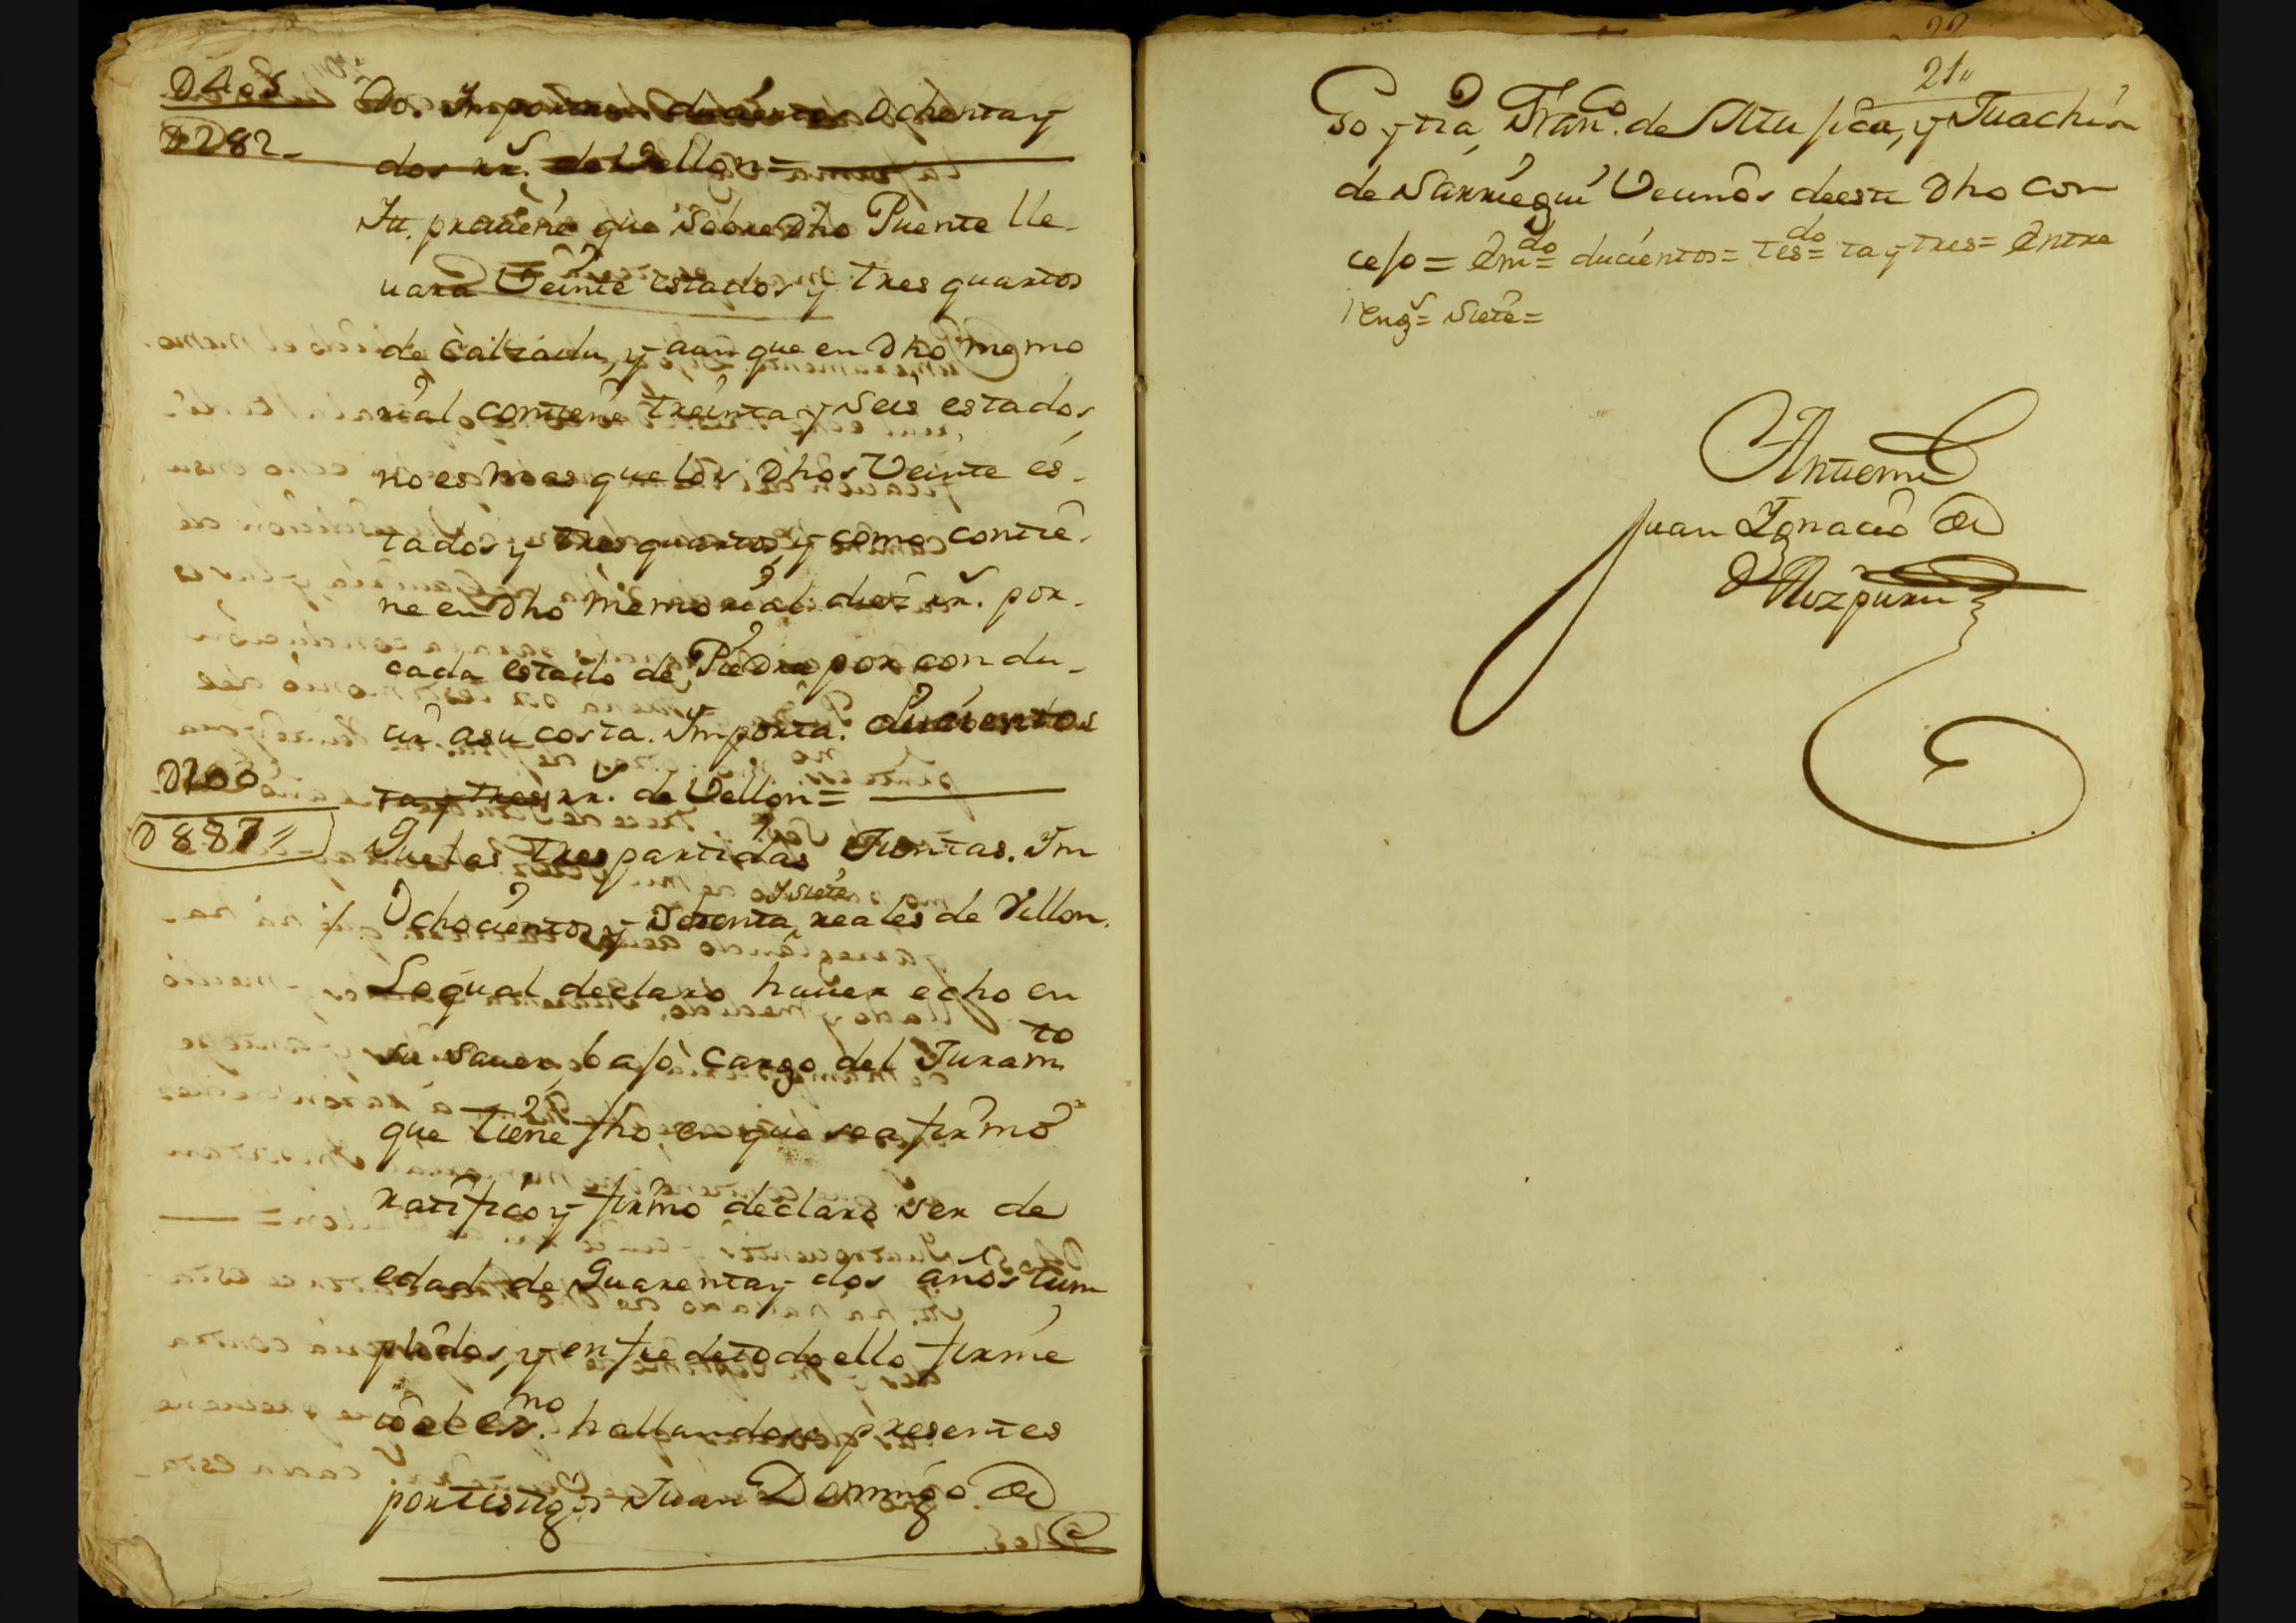 D405
D282
do. Importan ducientos ochenta y
dos rr.s de Vellon =
Itt. preuiene que sobre dho Puente lle-
uara Veinte estados y tres quartos
de Calzada, y aun que en dho memo
rial contiene treinta y seis estados,
no es mas que los dhos Veinte es-
tados y tres quartos, y como contie-
ne en dho memorial diez rr.s por-
cada estado de Piedra por condu-
cir asu costa. Importa. ducientos
D200
ta y tres rr.s de Vellon =
D887
Que las tres partidas Juntas. Im
y siete
Ochocientos y Setenta reales de Vellon.
Lo qual declaro hauer echo en
su sauer, bajo cargo del Juram to
que tiene fho en que se afirmo
ratifico y firmo declaro ser de
edad de quarenta y dos años Cum
plidos, y en fee de todo ello firme
io el ess.no hallandose presentes
por testigos Juan Domingo de
22
21
Fran.co de y Juachin
de Sarriegui Vecinos de este dho con
cejo = Em.do = ducientos = tes.do = ta y tres = Entre
reng.s = siete =
Antemi
Juan Ignacio de
Aizpuru